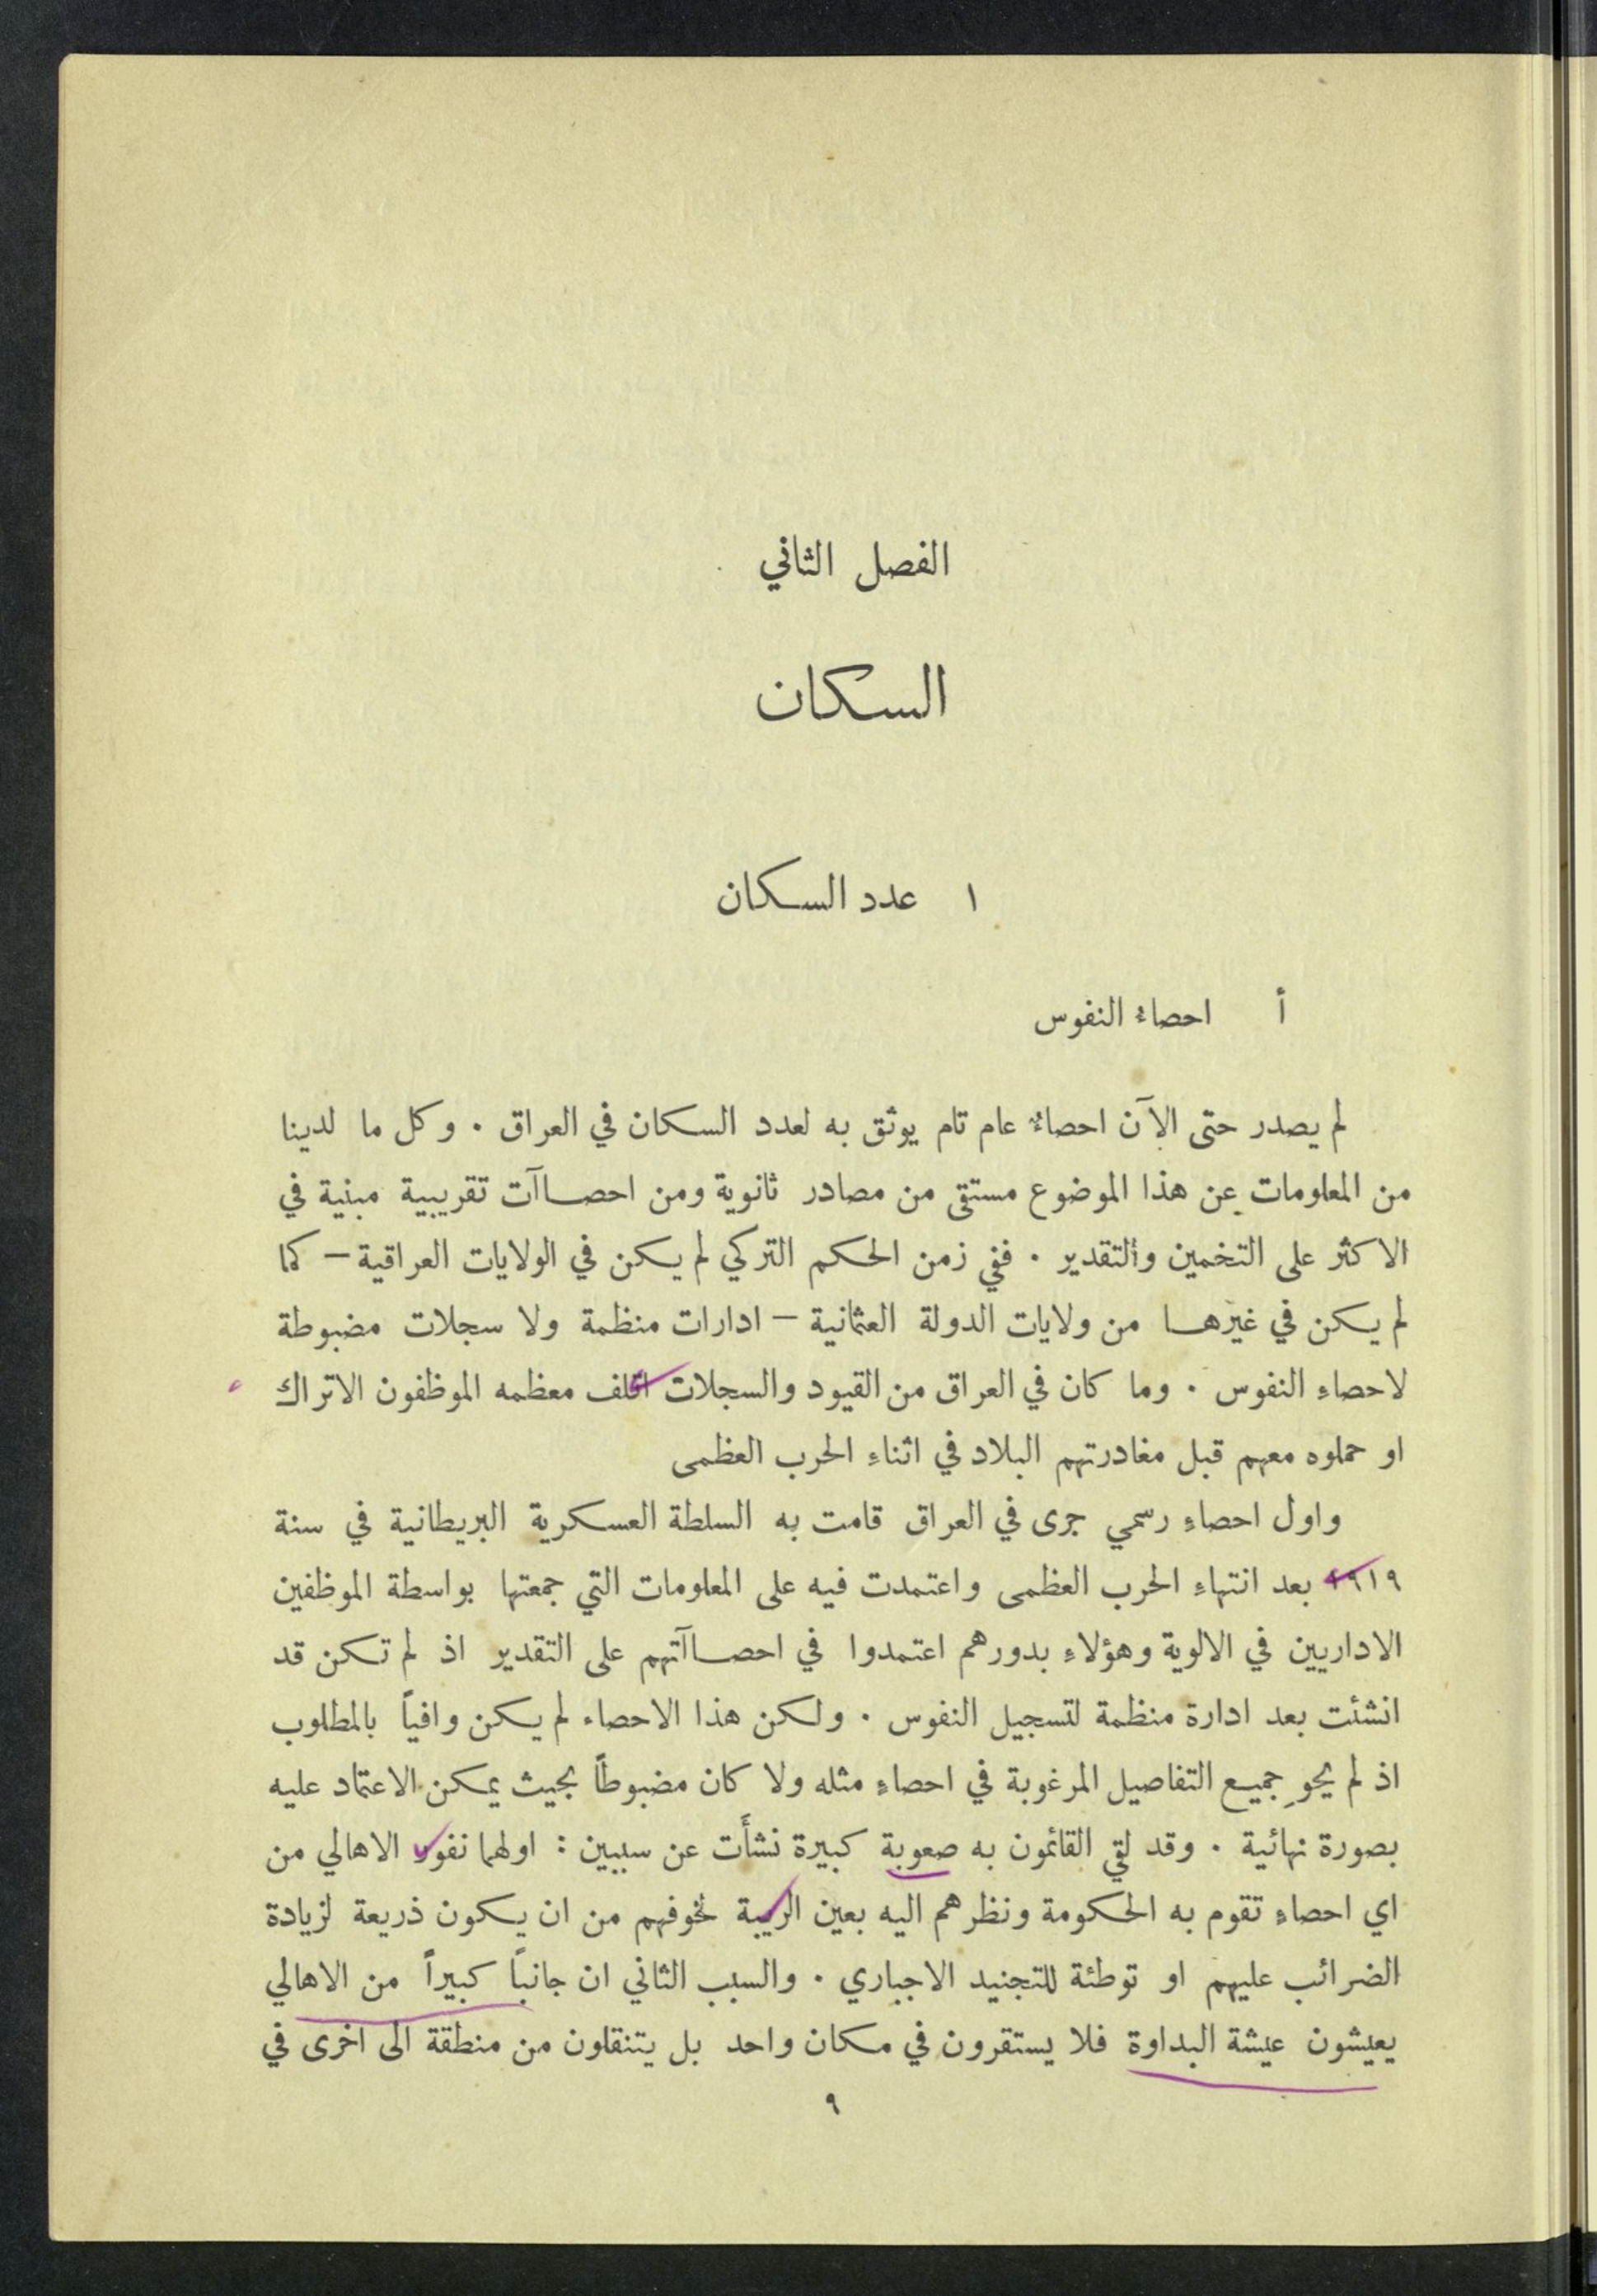 الفصل الثاني
السكان
١ عدد السكان
أ احصاءُ النفوس
لم يصدر حتى الآن احصاءٌ عام تام يوثق به لعدد السكان في العراق . وكل ما لدينا
من المعلومات عن هذا الموضوع مستقى من مصادر ثانوية ومن احصاآت تقريبية مبنية في
الاكثر على التخمين والتقدير . ففي زمن الحكم التركي لم يكن في الولايات العراقية — كما
لم يكن في غيرها من ولايات الدولة العثمانية — ادارات منظمة ولا سجلات مضبوطة
لاحصاءِ النفوس . وما كان في العراق من القيود والسجلات اتلف معظمه الموظفون الاتراك
او حملوه معهم قبل مغادرتهم البلاد في اثناءِ الحرب العظمى
واول احصاءِ رسمي جرى في العراق قامت به السلطة العسكرية البريطانية في سنة
١٩١٩ بعد انتهاءِ الحرب العظمى واعتمدت فيه على المعلومات التي جمعتها بواسطة الموظفين
الاداريين في الالوية وهؤلاءِ بدورهم اعتمدوا في احصاآتهم على التقدير اذ لم تكن قد
انشئت بعد ادارة منظمة لتسجيل النفوس . ولكن هذا الاحصاء لم يكن وافياً بالمطلوب
اذ لم يحوِ جميع التفاصيل المرغوبة في احصاءِ مثله ولا كان مضبوطاً بحيث يمكن الاعتماد عليه
بصورة نهائية . وقد لقي القائمون به صعوبة كبيرة نشأَت عن سببين : اولهما نفور الاهالي من
اي احصاءِ تقوم به الحكومة ونظرهم اليه بعين الريبة لخوفهم من ان يكون ذريعة لزيادة
الضرائب عليهم او توطئة للتجنيد الاجباري . والسبب الثاني ان جانباً كبيراً من الاهالي
يعيشون عيشة البداوة فلا يستقرون في مكان واحد بل يتنقلون من منطقة الى اخرى في
٩